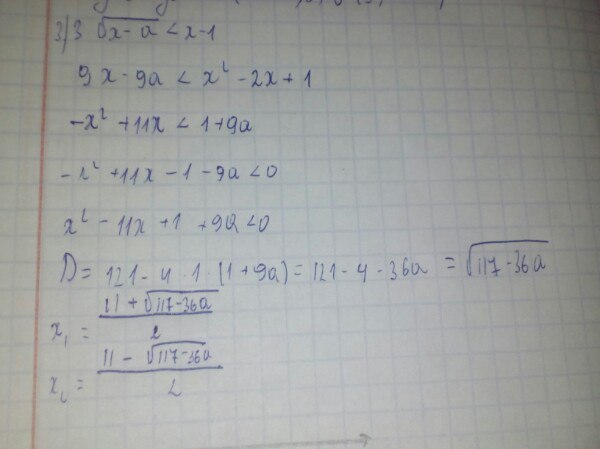 3/3 √x-a < x-1
9x - 9a < x² - 2x + 1
-x² + 11x < 1 + 9a
-x² + 11x - 1 - 9a < 0
x² - 11x + 1 + 9a < 0
D = 121 - 4 · 1 · (1 + 9a) = 121 - 4 - 36a = √117-36a
x₁ = (11 + √117-36a) / 2
x₂ = (11 - √117-36a) / 2